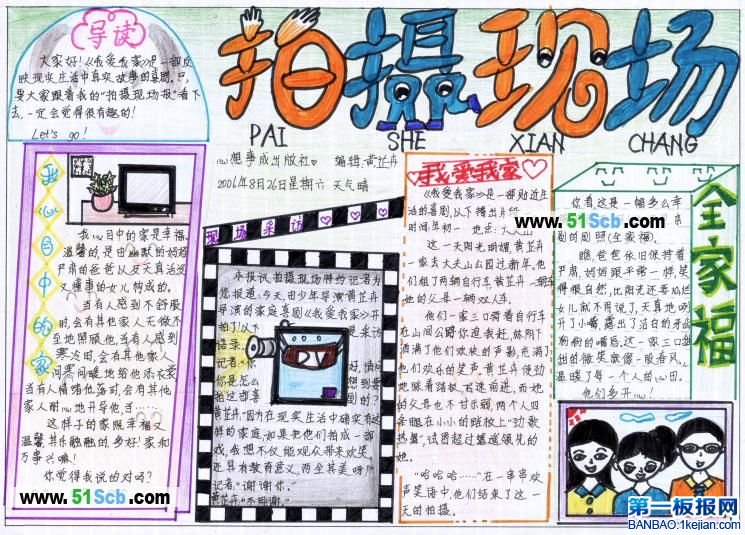 导读
大家好!《我爱我家》是一部反
映现实生活中真实故事的喜剧。只
要大家跟着我的"拍摄现场报"看下
去,一定会觉得很有趣的!
Let's go!
拍摄现场
PAI SHE XIAN CHANG
心想事成出版社
编辑:黄芷卉
2006年8月26日星期六 天气晴
我心目中的家
我心目中的家是幸福、
温馨的,是由幽默的妈妈
严肃的爸爸以及天真活泼
又懂事的女儿构成的。
当有人感到不舒服
时,会有其他家人无微不
至地照顾他,当有人感到
寒冷时,会有其他家人
问寒问暖,地给他添衣裳
当有人情绪低落时,会有其他
家人耐心地开导他,当……
这样子的家既幸福又
温馨,其乐融融的,多好!家和
万事兴嘛!
你觉得我说的对吗?
现场采访
本报讯 拍摄现场特约记者为
您报道:今天,由少年导演黄芷卉
导演的家庭喜剧《我爱我家》开
拍了!以下
是采访
语录。
记者:"你
好,请问
你是怎么
想到要
拍这部喜
黄芷卉:"因为在现实生活中确实有这
样的家庭,如果把他们拍成一部
戏,我想不仅能观众带来欢笑,
还具有教育意义,两全其美呀!"
记者:"谢谢你。"
黄芷卉:"不用谢。"
DV
我爱我家
《我爱我家》是一部贴近生
活的喜剧,以下播出片段
时间:年初一 地点:大夫山
这一天阳光明媚,黄芷卉
一家去大夫山公园过新年。他
们租了两辆自行车,黄芷卉一辆车
她的父母一辆双人车。
他们一家三口骑着自行车
在山间公路你追我赶,林阴下
洒满了他们欢快的身影,充满了
他们欢乐的笑声。黄芷卉使劲
地踩着踏板,飞速前进,而她
的父母也不甘示弱,两个人四
条腿在小小的踏板上"劲歌
热舞",试图超过遥遥领先的
她。
"哈哈哈……"在一串串欢
声笑语中,他们结束了这一
天的拍摄。
全家福
你看这是一幅多么幸
剧的剧照(全家福)。
瞧,爸爸依旧保持着
严肃,妈妈跟平常一样,笑
得很自然,比阳光还要灿烂
女儿就不用说了,天真地咧
开了小嘴,露出了洁白的牙齿
粉粉的嘴唇。这一家三口甜
甜的微笑就像一股春风,
温暖了每一个人的心田。
他们多开心!
www.51Scb.com
www.51Scb.com
www.51Scb.com
第一板报网
BANBAO.1kejian.com